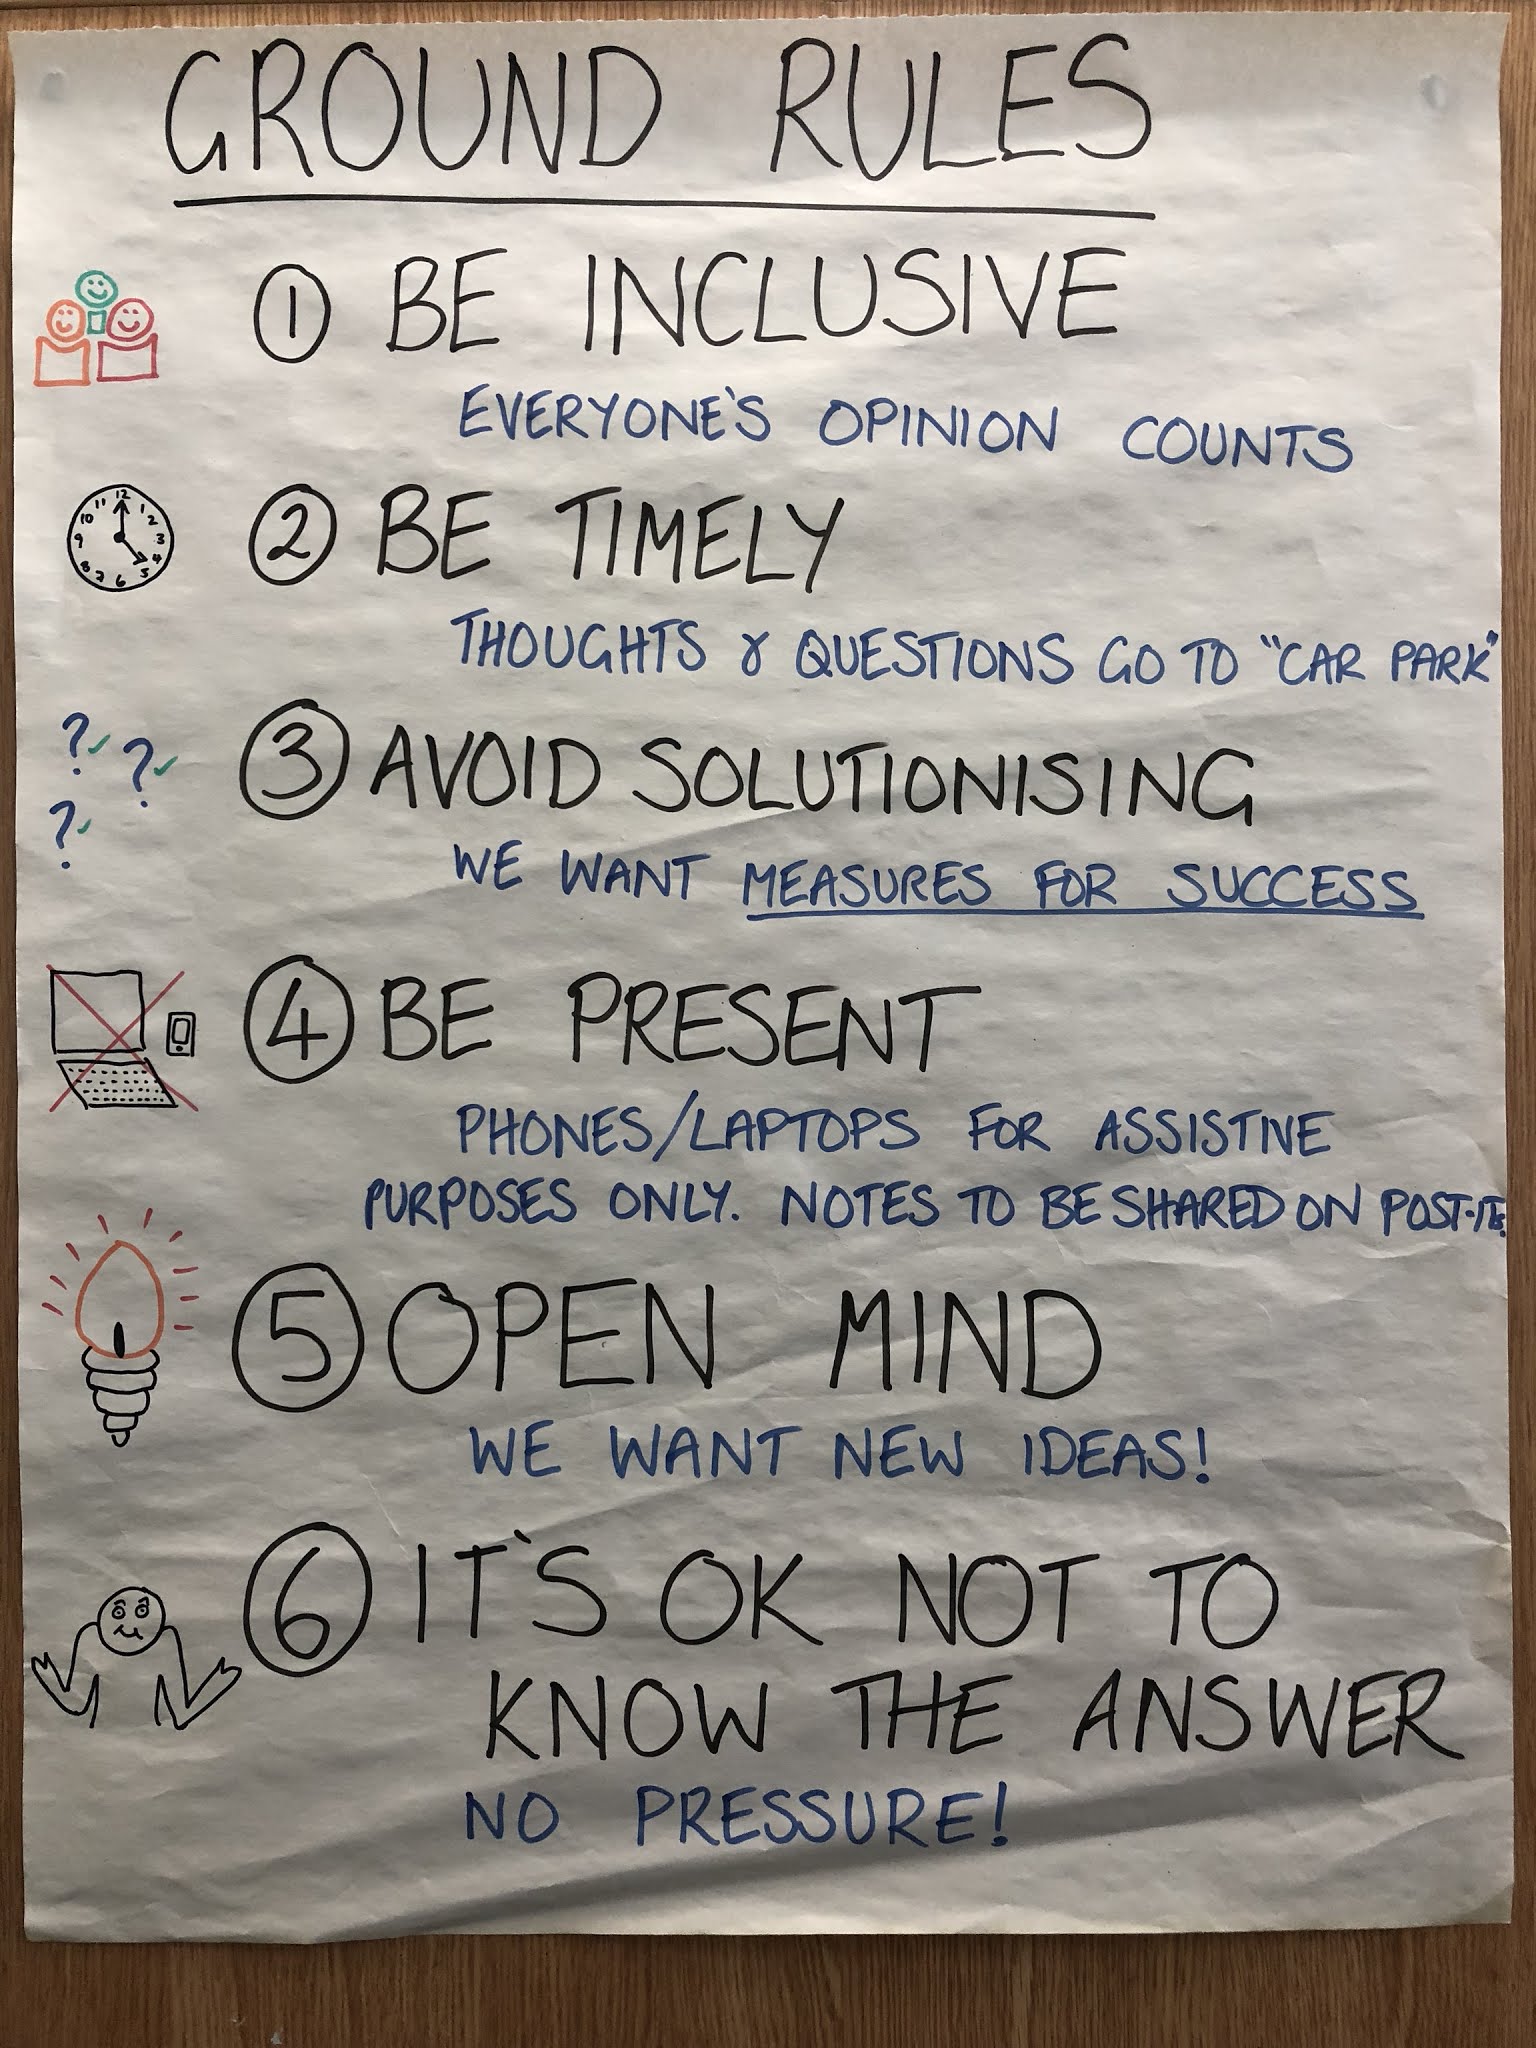 GROUND RULES
1 BE INCLUSIVE
EVERYONE'S OPINION COUNTS
12
11 1
10 2
9 3
8 4
7 6 5
2 BE TIMELY
THOUGHTS & QUESTIONS GO TO "CAR PARK"
? ?
?
3 AVOID SOLUTIONISING
WE WANT MEASURES FOR SUCCESS
4 BE PRESENT
PHONES/LAPTOPS FOR ASSISTIVE
PURPOSES ONLY. NOTES TO BE SHARED ON POST-ITS.
5 OPEN MIND
WE WANT NEW IDEAS!
6 IT'S OK NOT TO
KNOW THE ANSWER
NO PRESSURE!